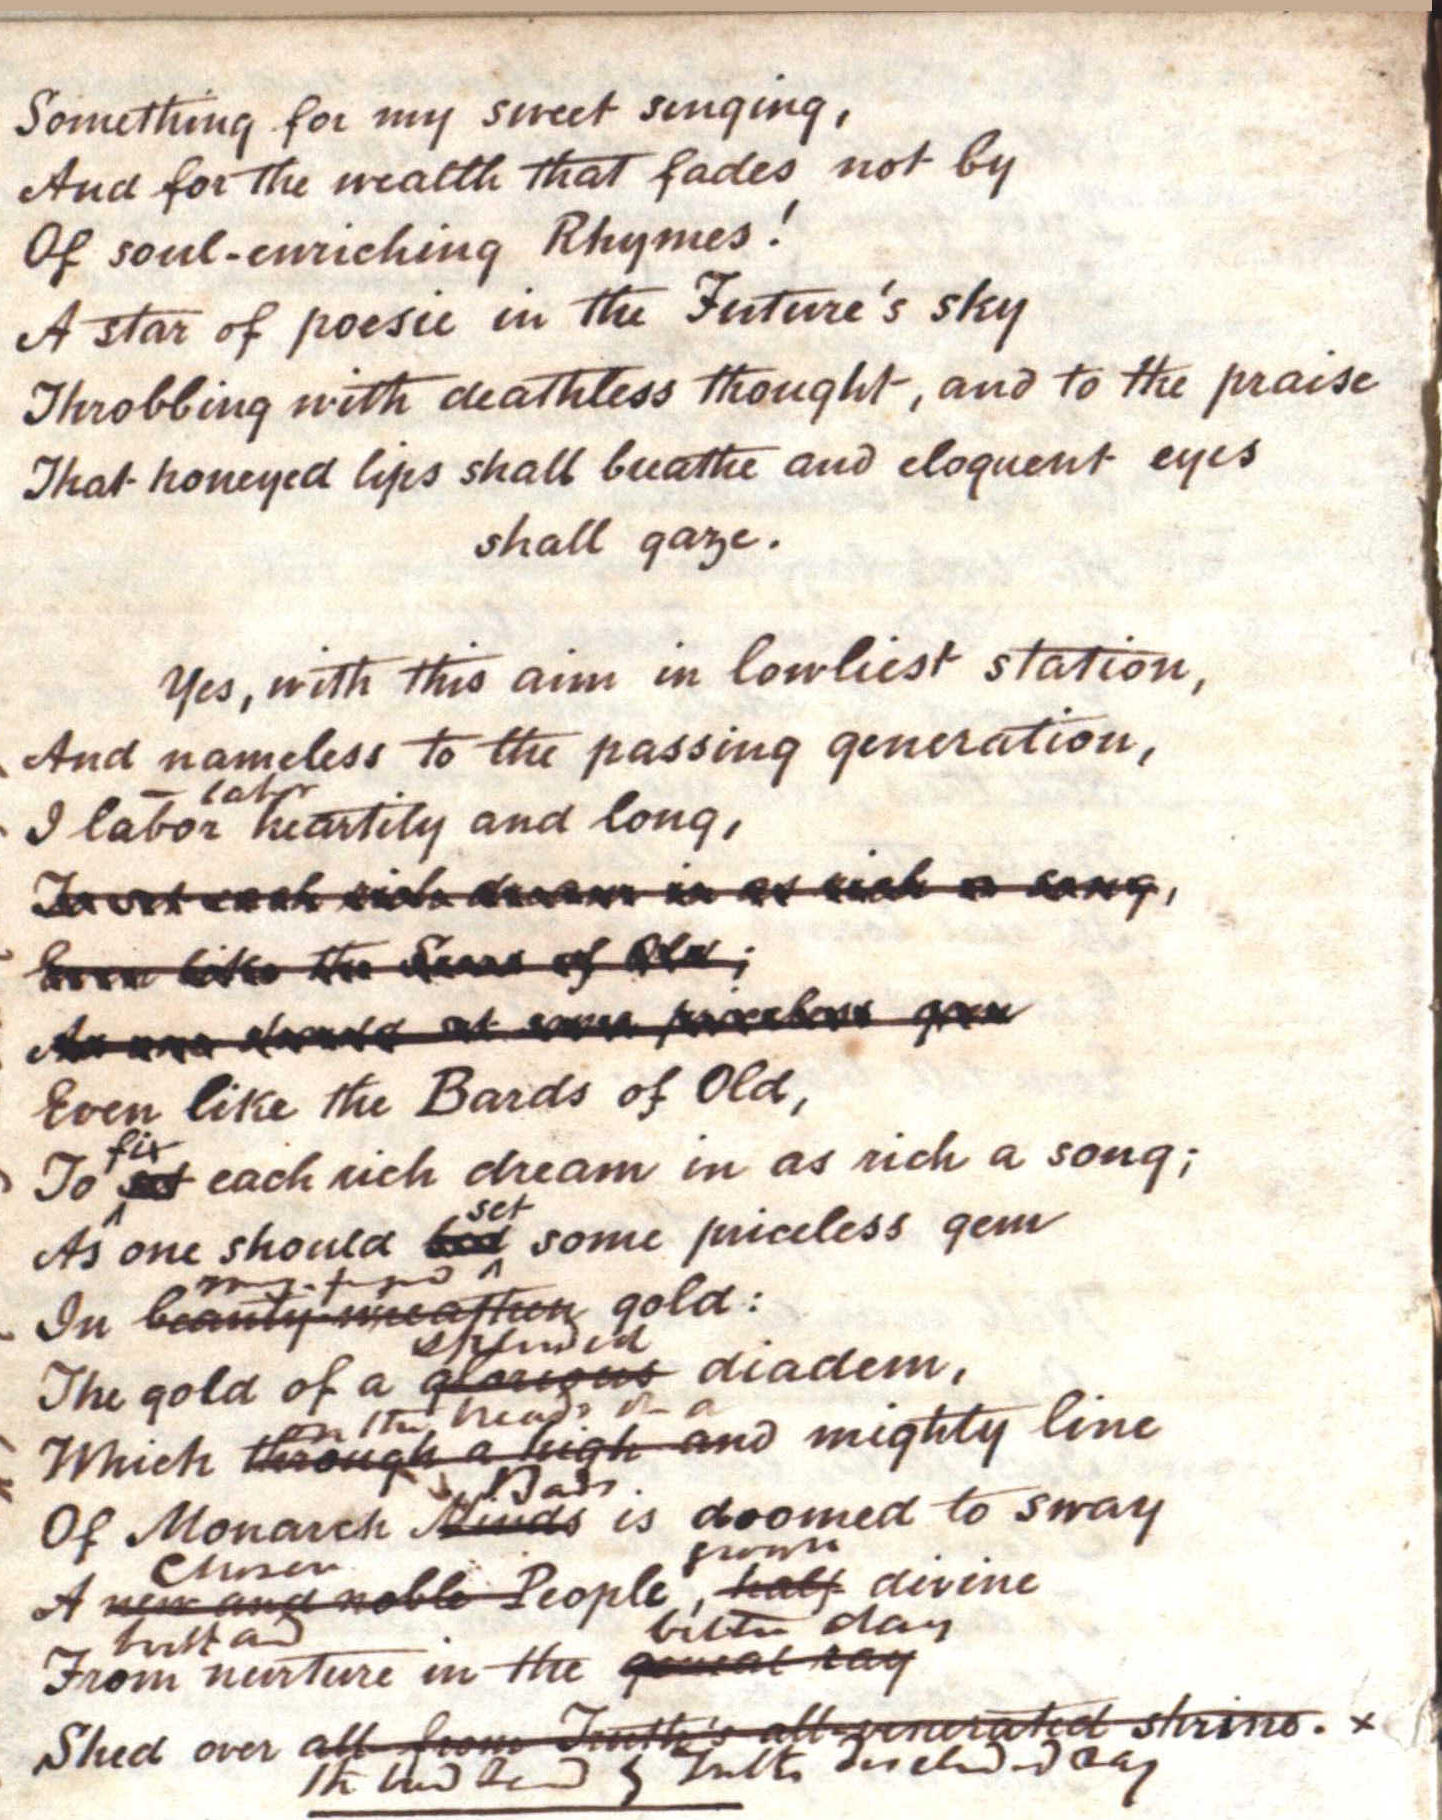 Something for my sweet singing,
And for the wealth that fades not by
Of soul-enriching Rhymes!
A star of poesie in the Future's sky
Throbbing with deathless thought, and to the praise
That honeyed lips shall breathe and eloquent eyes
shall gaze.
Yes, with this aim in lowliest station,
And nameless to the passing generation,
labor
I labor heartily and long,
To set each rich dream in as rich a song,
Even like the Seers of Old;
As one should set some priceless gem
Even like the Bards of Old,
fix
To set each rich dream in as rich a song;
set
As one should some priceless gem
In beauty-wreathen gold:
splendid
The gold of a glorious diadem,
on the heads of a
Which through a high and mighty line
Bards
Of Monarch Minds is doomed to sway
chosen grown
A new and noble People, half divine
birth and better day
From nurture in the genial ray
Shed over all from Truth's all-venerated shrine. x
Truth's day